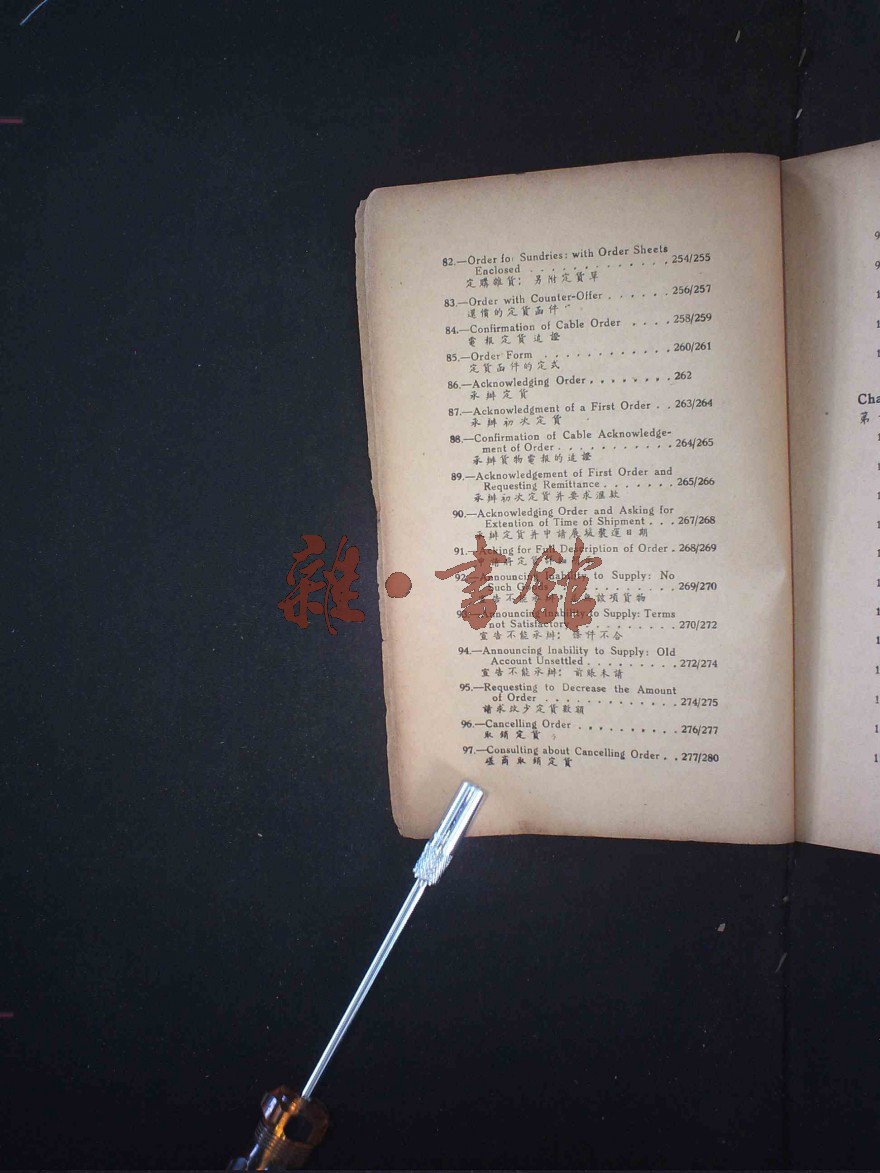 82.—Order for Sundries: with Order Sheets
Enclosed . . . . . . . . . . . . . 254/255
定購雜貨：另附定貨單
83.—Order with Counter-Offer . . . . . . 256/257
還價的定貨函件
84.—Confirmation of Cable Order . . . . 258/259
電報定貨追證
85.—Order Form . . . . . . . . . . . . 260/261
定貨函件的定式
86.—Acknowledging Order . . . . . . . . 262
承辦定貨
87.—Acknowledgment of a First Order . . 263/264
承辦初次定貨
88.—Confirmation of Cable Acknowledge-
ment of Order . . . . . . . . . . . 264/265
承辦貨物電報的追證
89.—Acknowledgement of First Order and
Requesting Remittance . . . . . . . 265/266
承辦初次定貨并要求滙欵
90.—Acknowledging Order and Asking for
Extention of Time of Shipment . . . 267/268
承辦定貨并申請展緩裝運日期
91.—Asking for Full Description of Order . 268/269
92.—Announcing Inability to Supply: No
Such Goods . . . . . . . . . . . 269/270
該項貨物
93.—Announcing Inability to Supply: Terms
not Satisfactory . . . . . . . . . 270/272
宣告不能承辦：條件不合
94.—Announcing Inability to Supply: Old
Account Unsettled . . . . . . . . . 272/274
宣告不能承辦：前賬未清
95.—Requesting to Decrease the Amount
of Order . . . . . . . . . . . . . 274/275
請求改少定貨數額
96.—Cancelling Order . . . . . . . . . . 276/277
取銷定貨
97.—Consulting about Cancelling Order . . 277/280
磋商取銷定貨
Cha
第
雜·書館